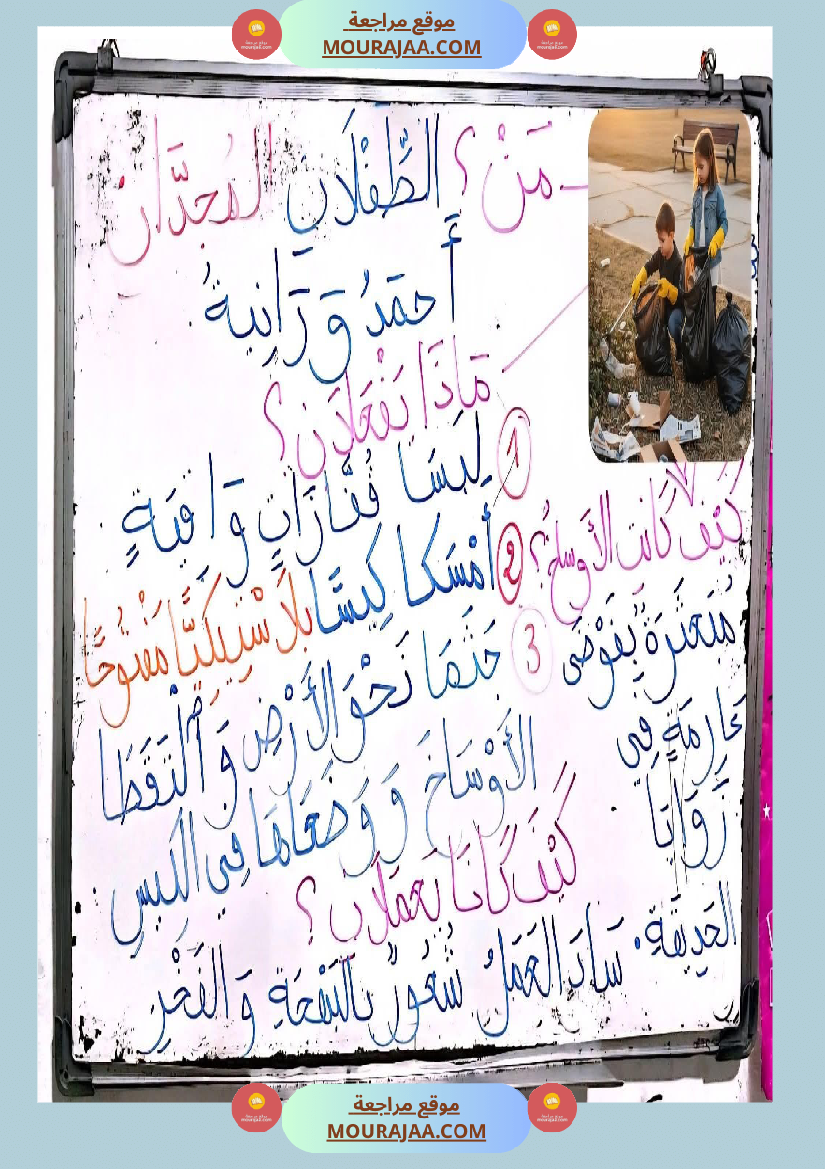 موقع مراجعة
MOURAJAA.COM
مَنْ؟ الطِّفْلَانِ المُجِدَّانِ
أَحمَدُ وَ رَانِيةُ
مَاذَا يَفْعَلَانِ؟
1 لَبِسَا قُفَّازَاتٍ وَاقِيَةٍ
2 أَمْسَكا كِيسًا بلَاسْتِيكِيًّا مَفْتُوحًا
3 جَثَمَا نَحْوَ الأَرْضِ وَ الْتَقَطَا
الأَوْسَاخَ وَ وَضَعَاهَا فِي الكِيسِ
كَيْفَ كَانت الأَوساخُ؟
مُتَعَثِّرَةٌ بِفَوْضَى
عَارِمَةٍ فِي
زَوَايَا
الحَدِيقَةِ.
كَيْفَ كَانَا يَعْمَلَانِ؟
سَادَ العَمَلَ شُعُورٌ بِالبَهْجَةِ وَ الفَخْرِ
موقع مراجعة
MOURAJAA.COM